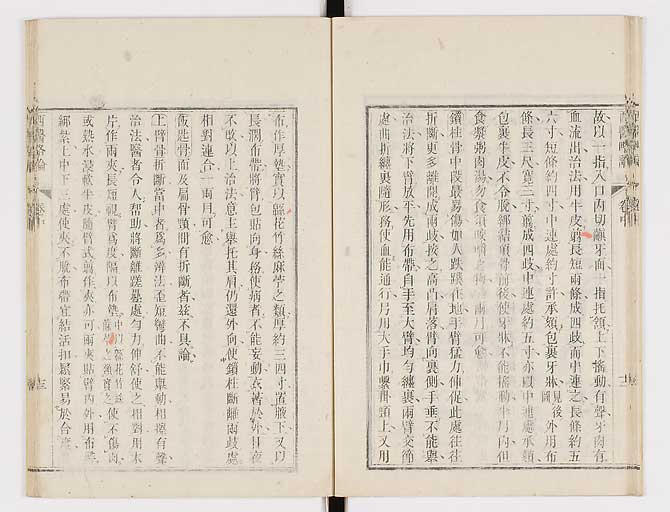 故以一指入口內切齦牙面一指托頷上下搖動有聲牙肉有
血流出治法用牛皮剪長短兩條成四歧而中連之長條約五
六寸短條約四寸中連處約寸許承頦包裹牙牀見後圖外用布
條長三尺寬三寸剪成四歧中連處約五寸亦以中連處承頦
包裹牛皮不令脫綁結頭骨前後使牙牀不能搖動半月內但
食漿粥肉湯勿食須咬嚼之物兩月可愈
鎖柱骨中段最易傷如人跌撲在地手臂猛力伸促此處往往
折斷更多離開成兩歧按之高凸肩落臂向裏側手垂不能舉
治法將下臂放平先用布帶自手至大臂均勻纏裹兩臂交節
處曲折纏裹隨形務使血能通行另用大手巾繫掛頸上又用
布作厚墊實以綿花竹絲麻苧之類厚約三四寸置腋下又以
長濶布帶將臂包貼向身務使病者不能妄動衣著於外日夜
不改以上治法意主舉托其肩仍還外向使鎖柱斷離兩歧處
相對連合一兩月可愈
飯匙骨面及肩骨頸間有折斷者茲不具論
上臂骨折斷當中者為多辨法歪短彎曲不能舉動相擦有聲
治法醫者令人幫助將斷離蹉疊處勻力伸舒使之相對用木
片作兩夾長短視臂為度隔以布墊使不傷肉
或熱水浸軟牛皮隨臂式剪作夾亦可兩夾貼臂內外用布帶
綁紮上中下三處使夾不脫布帶宜結活扣鬆緊易於合度
西醫略論
卷中